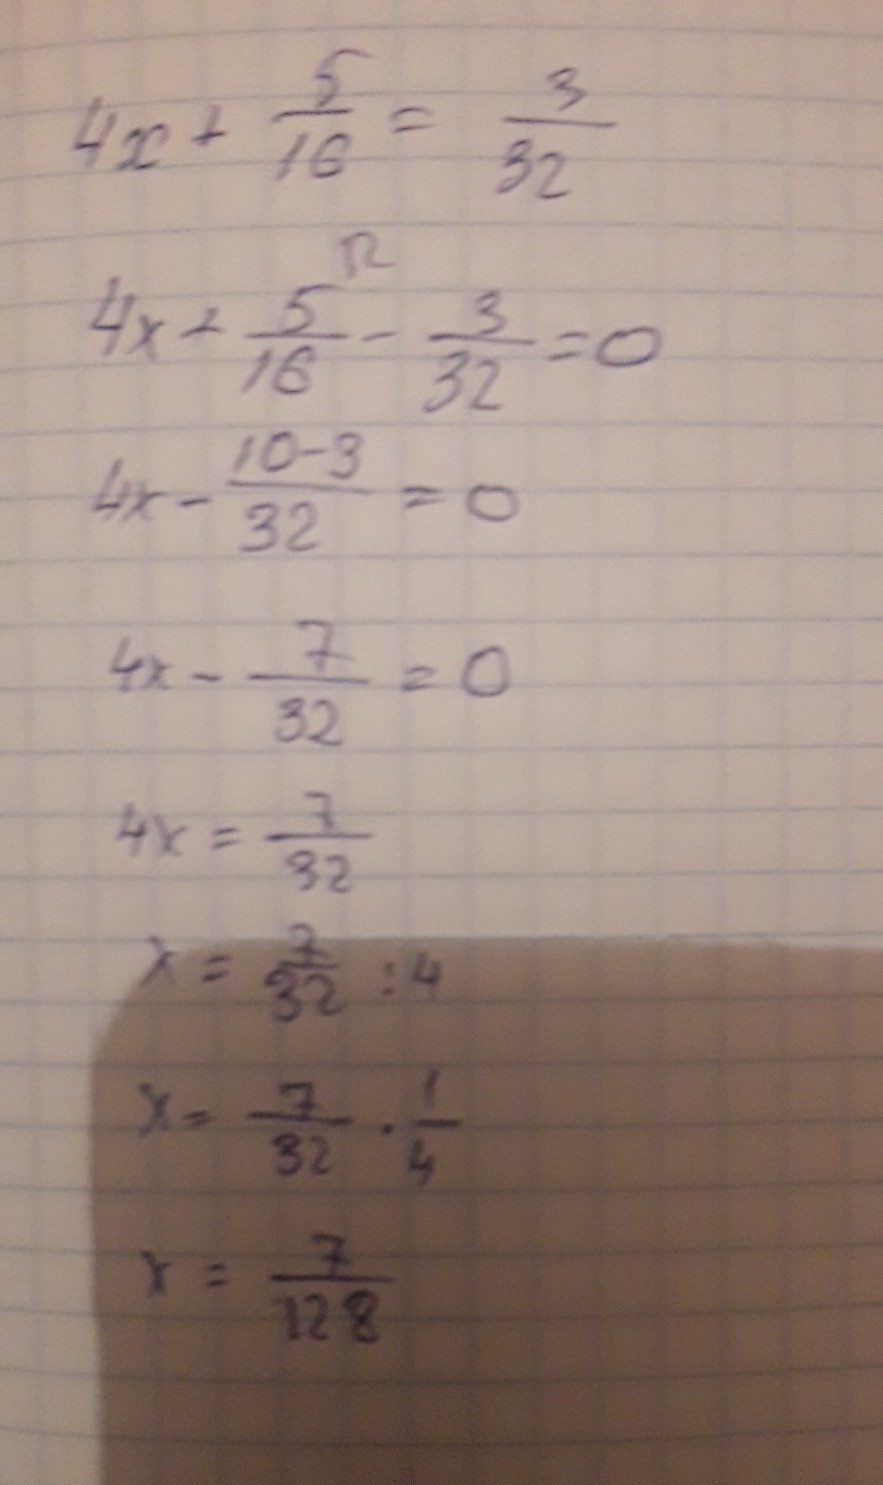 4x + 5/16 = 3/32
4x + 5/16 ^2 - 3/32 = 0
4x - 10-3/32 = 0
4x - 7/32 = 0
4x = 7/32
x = 7/32 : 4
x = 7/32 · 1/4
x = 7/128